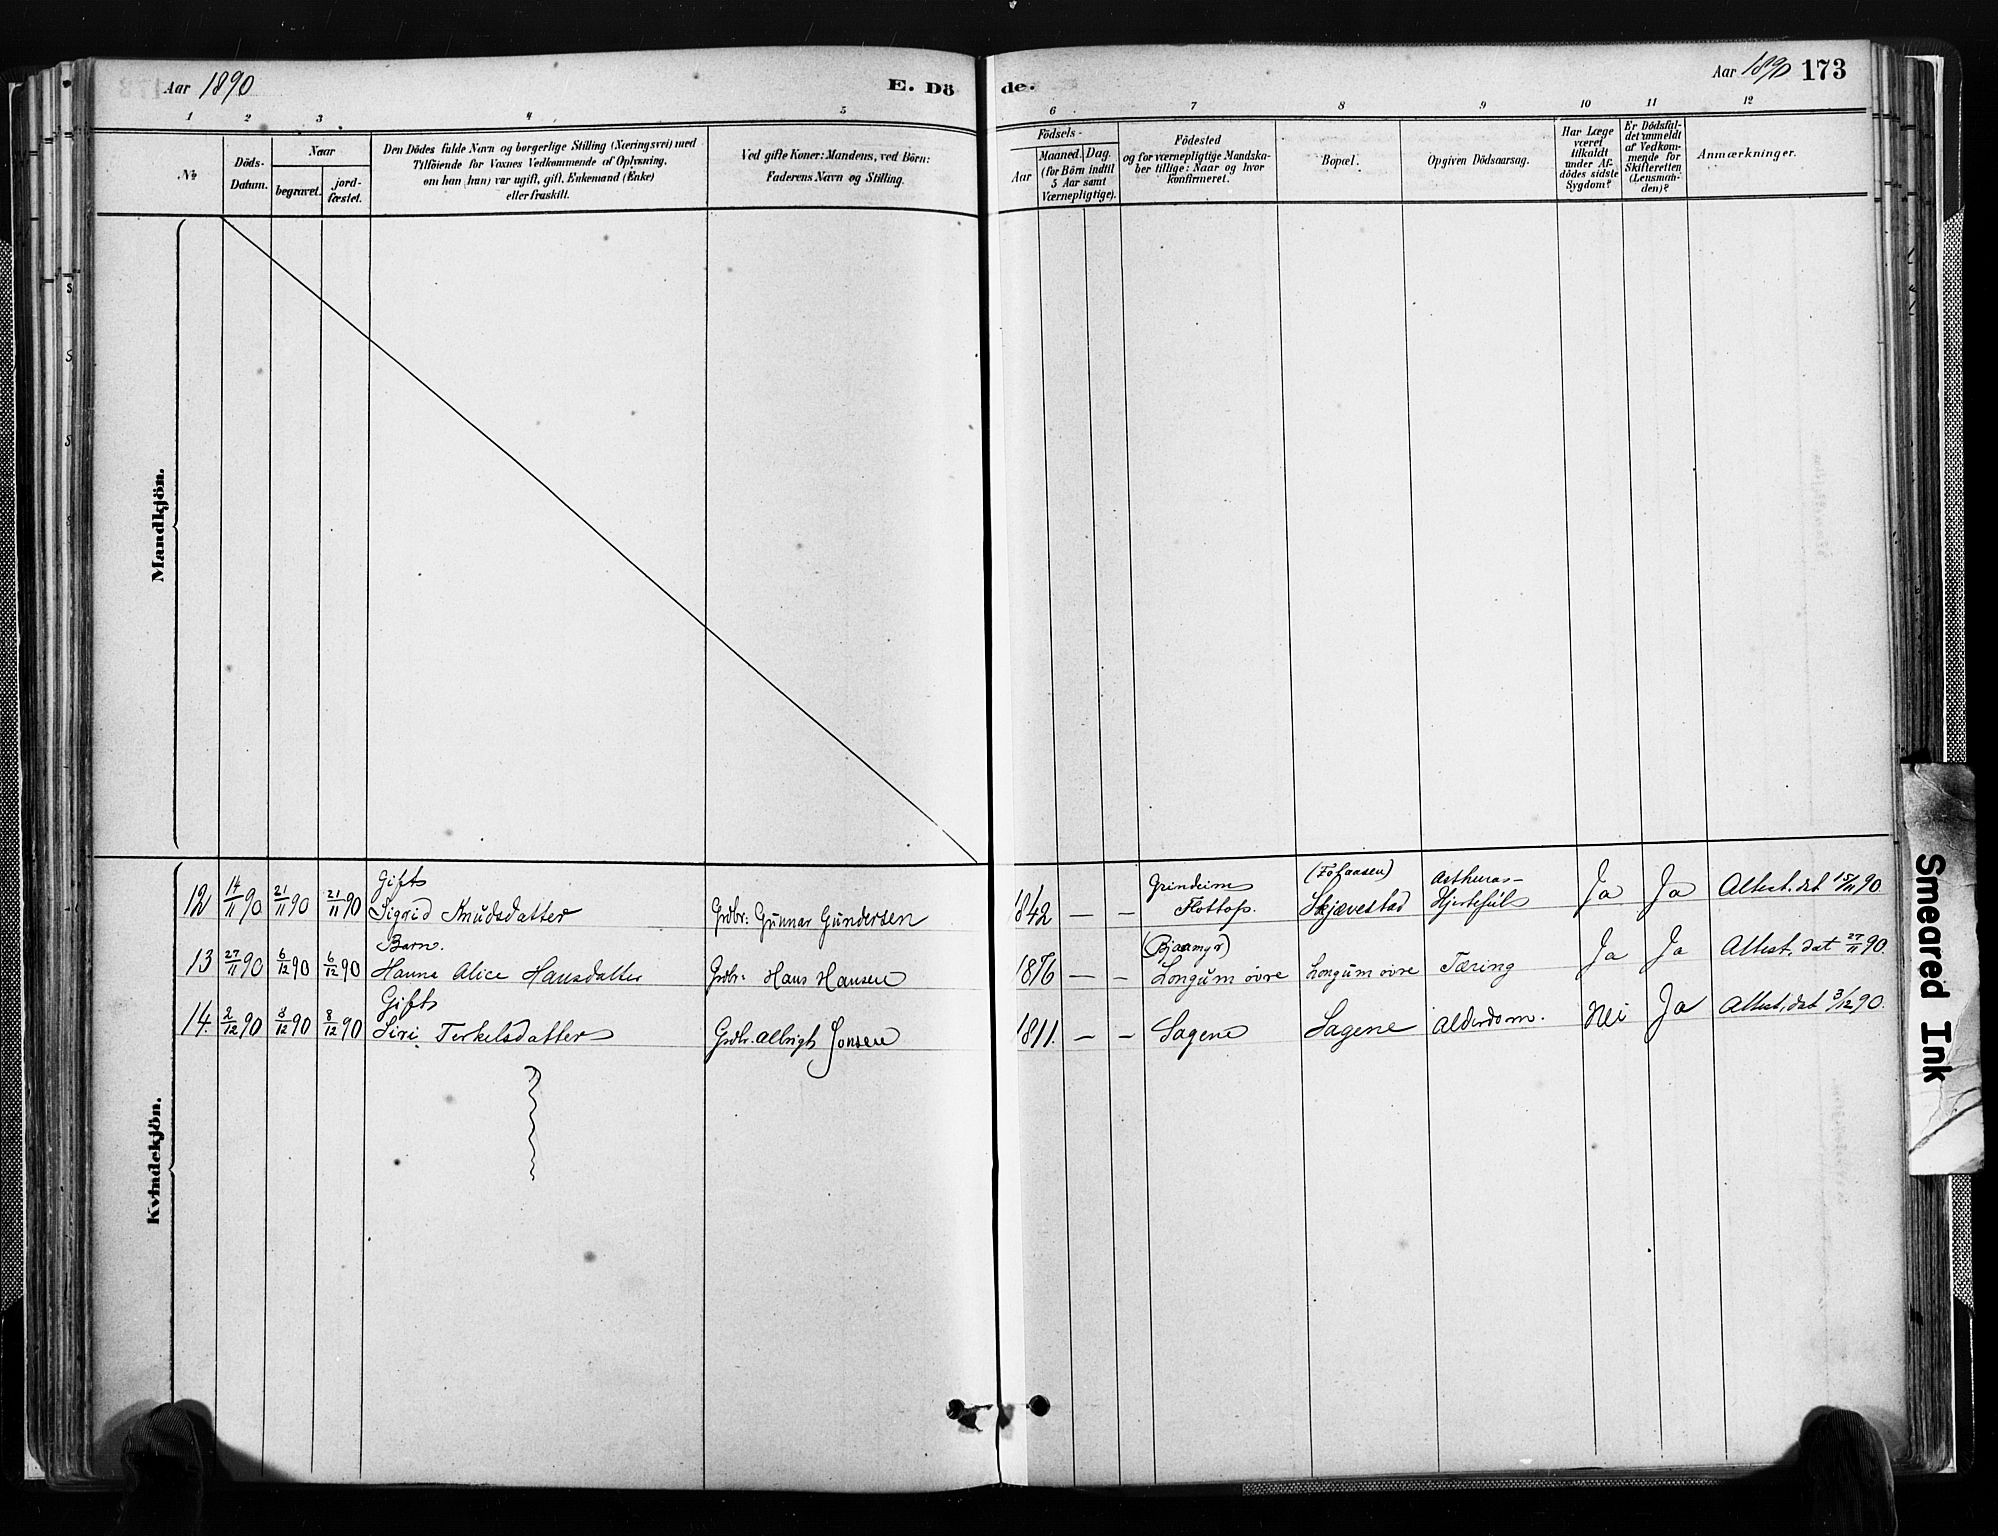 Aar 1890
E. Dö
de.
Aar 1890 173
1 2 3 4 5 6 7 8 9 10 11 12
No
Döds-
Datum.
Naar
begravet.
jord-
fæstet.
Den Dödes fulde Navn og borgerlige Stilling (Næringsvei) med
Tilföiende for Voxnes Vedkommende af Oplysning,
om han (hun) var ugift, gift, Enkemand (Enke)
eller fraskilt.
Ved gifte Koner: Mandens, ved Börn:
Faderens Navn og Stilling.
Födsels-
Aar
Maaned. Dag.
(for Börn indtil
5 Aar samt
Værnepligtige).
Födested
og for værnepligtige Mandska-
ber tillige: Naar og hvor
konfirmeret.
Bopæl.
Opgiven Dödsaarsag.
Har Læge
været
tilkaldt
under Af-
dödes sidste
Sygdom?
Er Dödsfal-
det anmeldt
af Vedkom-
mende for
Skifteretten
(Lensman-
den)?
Anmærkninger.
Mandkjön.
Kvindekjön.
12 14/11 90 21/11 90 21/11 90 Gift
Sigrid Knudsdatter Grdbr: Gunnar Gundersen 1842 — — Grindeim
Flottop. Skjævestad Hjertefeil Ja Ja Attest. dat 15/11 90
13 27/11 90 6/12 90 6/12 90 Barn.
Hanna Alice Hansdatter Grdbr: Hans Hansen 1876 — — (Bjaamyr)
Longum øvre Longum øvre Tæring Ja Ja Attest. dat 27/11 90.
14. 2/12 90 8/12 90 8/12 90 Gift
Siri Terkelsdatter Grdbr. Albrigt Jonsen 1811. — — Sagene Sagene Alderdom. Nei Ja Attest. dat 3/12 90.
Smeared Ink